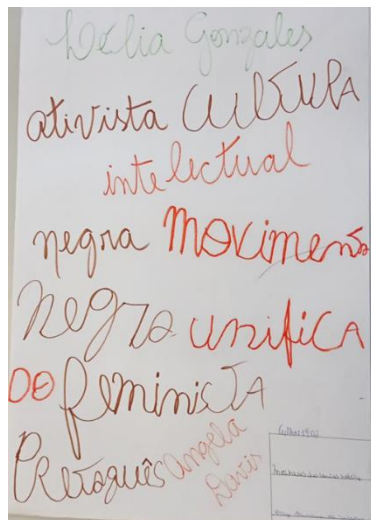 Lélia Gonzales
ativista CULTURA
intelectual
negra Movimento
Negra unifica
DO feminista
Pretoguês Angela
Davis